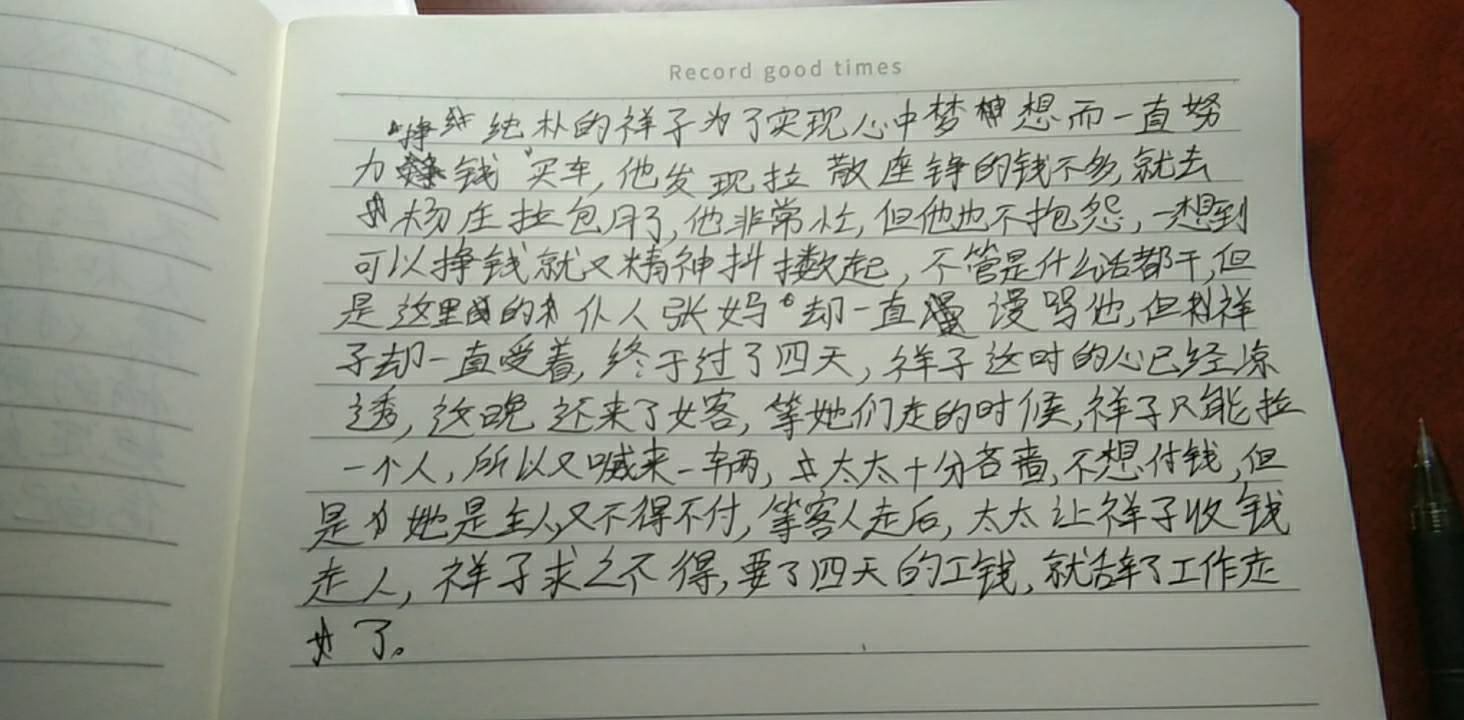 Record good times
纯朴的祥子为了实现心中梦想而一直努
力挣钱买车,他发现拉散座铮的钱不多,就去
杨庄拉包月了,他非常忙,但他也不抱怨,一想到
可以挣钱就又精神抖擞起,不管是什么活都干,但
是这里的仆人张妈却一直谩骂他,但祥
子却一直受着,终于过了四天,祥子这时的心已经凉
透,这晚还来了女客,等她们走的时候,祥子只能拉
一个人,所以又喊来一辆,太太十分吝啬,不想付钱,但
是她是主人又不得不付,等客人走后,太太让祥子收钱
走人,祥子求之不得,要了四天的工钱,就辞了工作走
了。